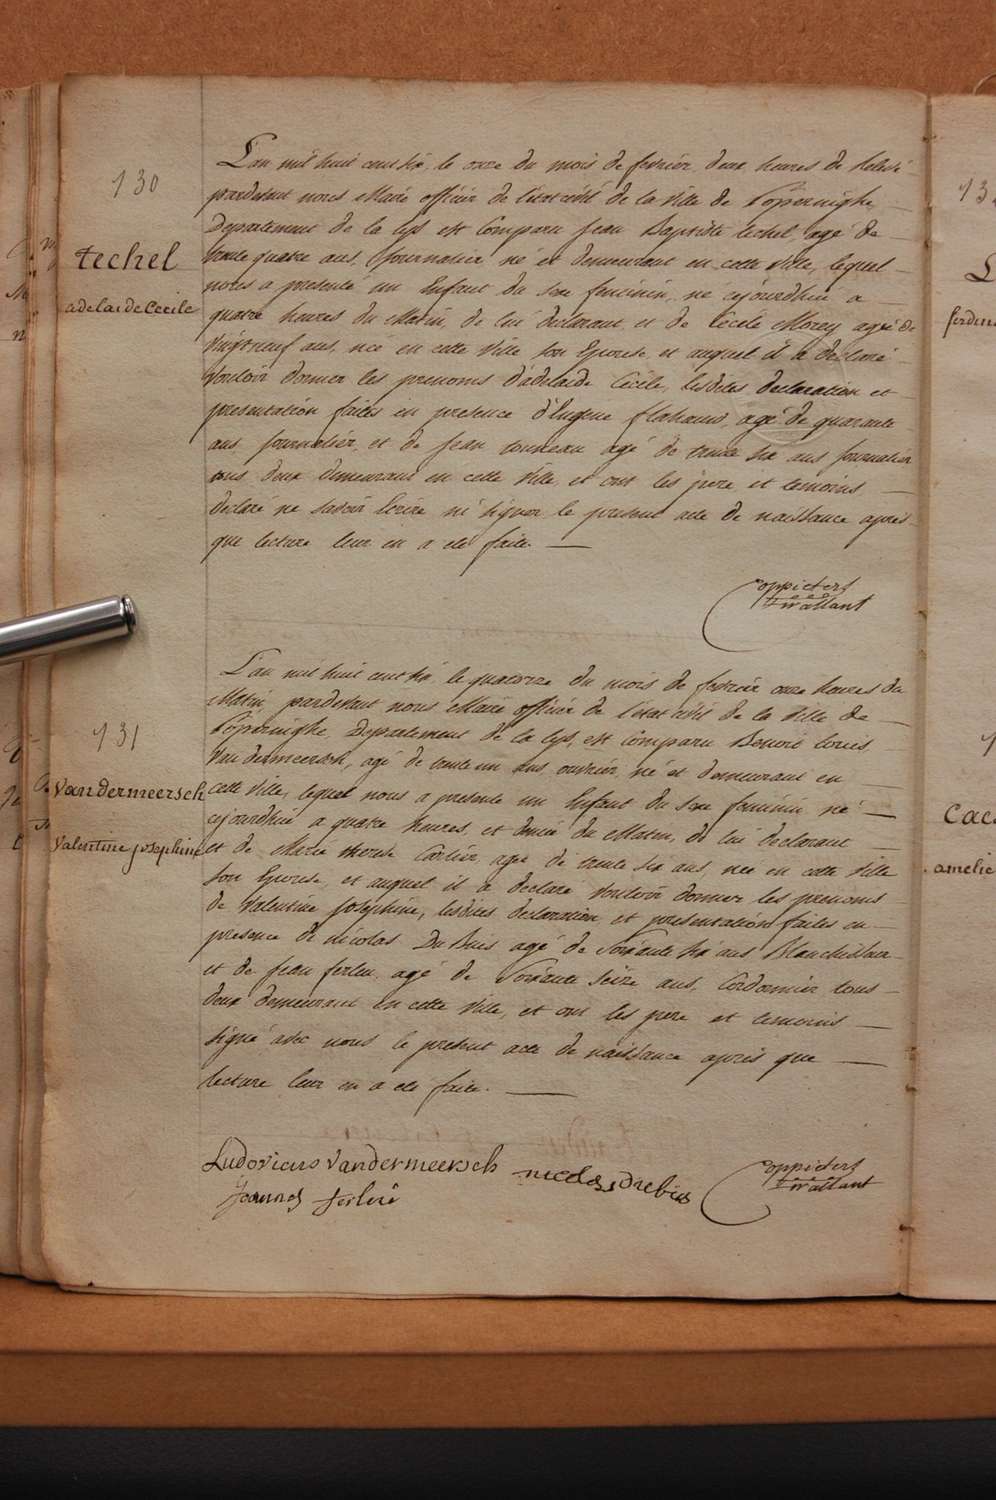 130
techel
adelaide Cecile
L'an mil huit cent six, le onze du mois de fevrier deux heures de
pardevant nous Maire officier de l'état civil de la ville de Poperinghe
Departement de la Lys est Comparu Jean Baptiste techel, agé de
trente quatre ans, Journalier, né et demeurant en cette ville, lequel
nous a presente un Enfant du sexe feminin, né cejourdhui a
quatre heures du Matin, de lui declarant et de Cecile Morey agée de
vingt neuf ans, née en cette ville son Epouse, et auquel il a declaré
vouloir donner les prenoms d'adelaide Cecile, lesdites declaration et
presentation faites en presence d'Eugene agé de quarante
ans Journalier, et de Jean agé de trente six ans Journalier
tous deux demeurans en cette ville, et ont les pere et temoins
declaré ne savoir Ecrire ni signer le present acte de naissance après
que lecture leur en a ete faite.
Coppieters
t'wallant
131
Vandermeersch
Valentine josephine
L'an mil huit cent six, le quatorze du mois de fevrier onze heures du
Matin, pardevant nous Maire officier de l'état civil de la ville de
Poperinghe, Departement de la Lys, est Comparu Benoit Louis
Vandermeersch, agé de trente un ans ouvrier, né et demeurant en
cette ville, lequel nous a presente un Enfant du sexe feminin né
cejourdhui a quatre heures, et demie du Matin, de lui declarant
et de Marie therese Carlier, agée de trente six ans, née en cette ville
son Epouse, et auquel il a declaré vouloir donner les prenoms
de Valentine Josephine, lesdites declaration et presentation faites en
presence de nicolas DuBuis agé de soixante six ans Blanchisseur
et de Jean ferlin agé de soixante seize ans, Cordonnier tous
deux demeurant en cette ville, et ont les pere et temoins
signé avec nous le present acte de naissance après que
lecture leur en a ete faite.
Ludovicus Vandermeersch
Joannes
Coppieters
t'wallant
L
ferdin
Cae
amelie